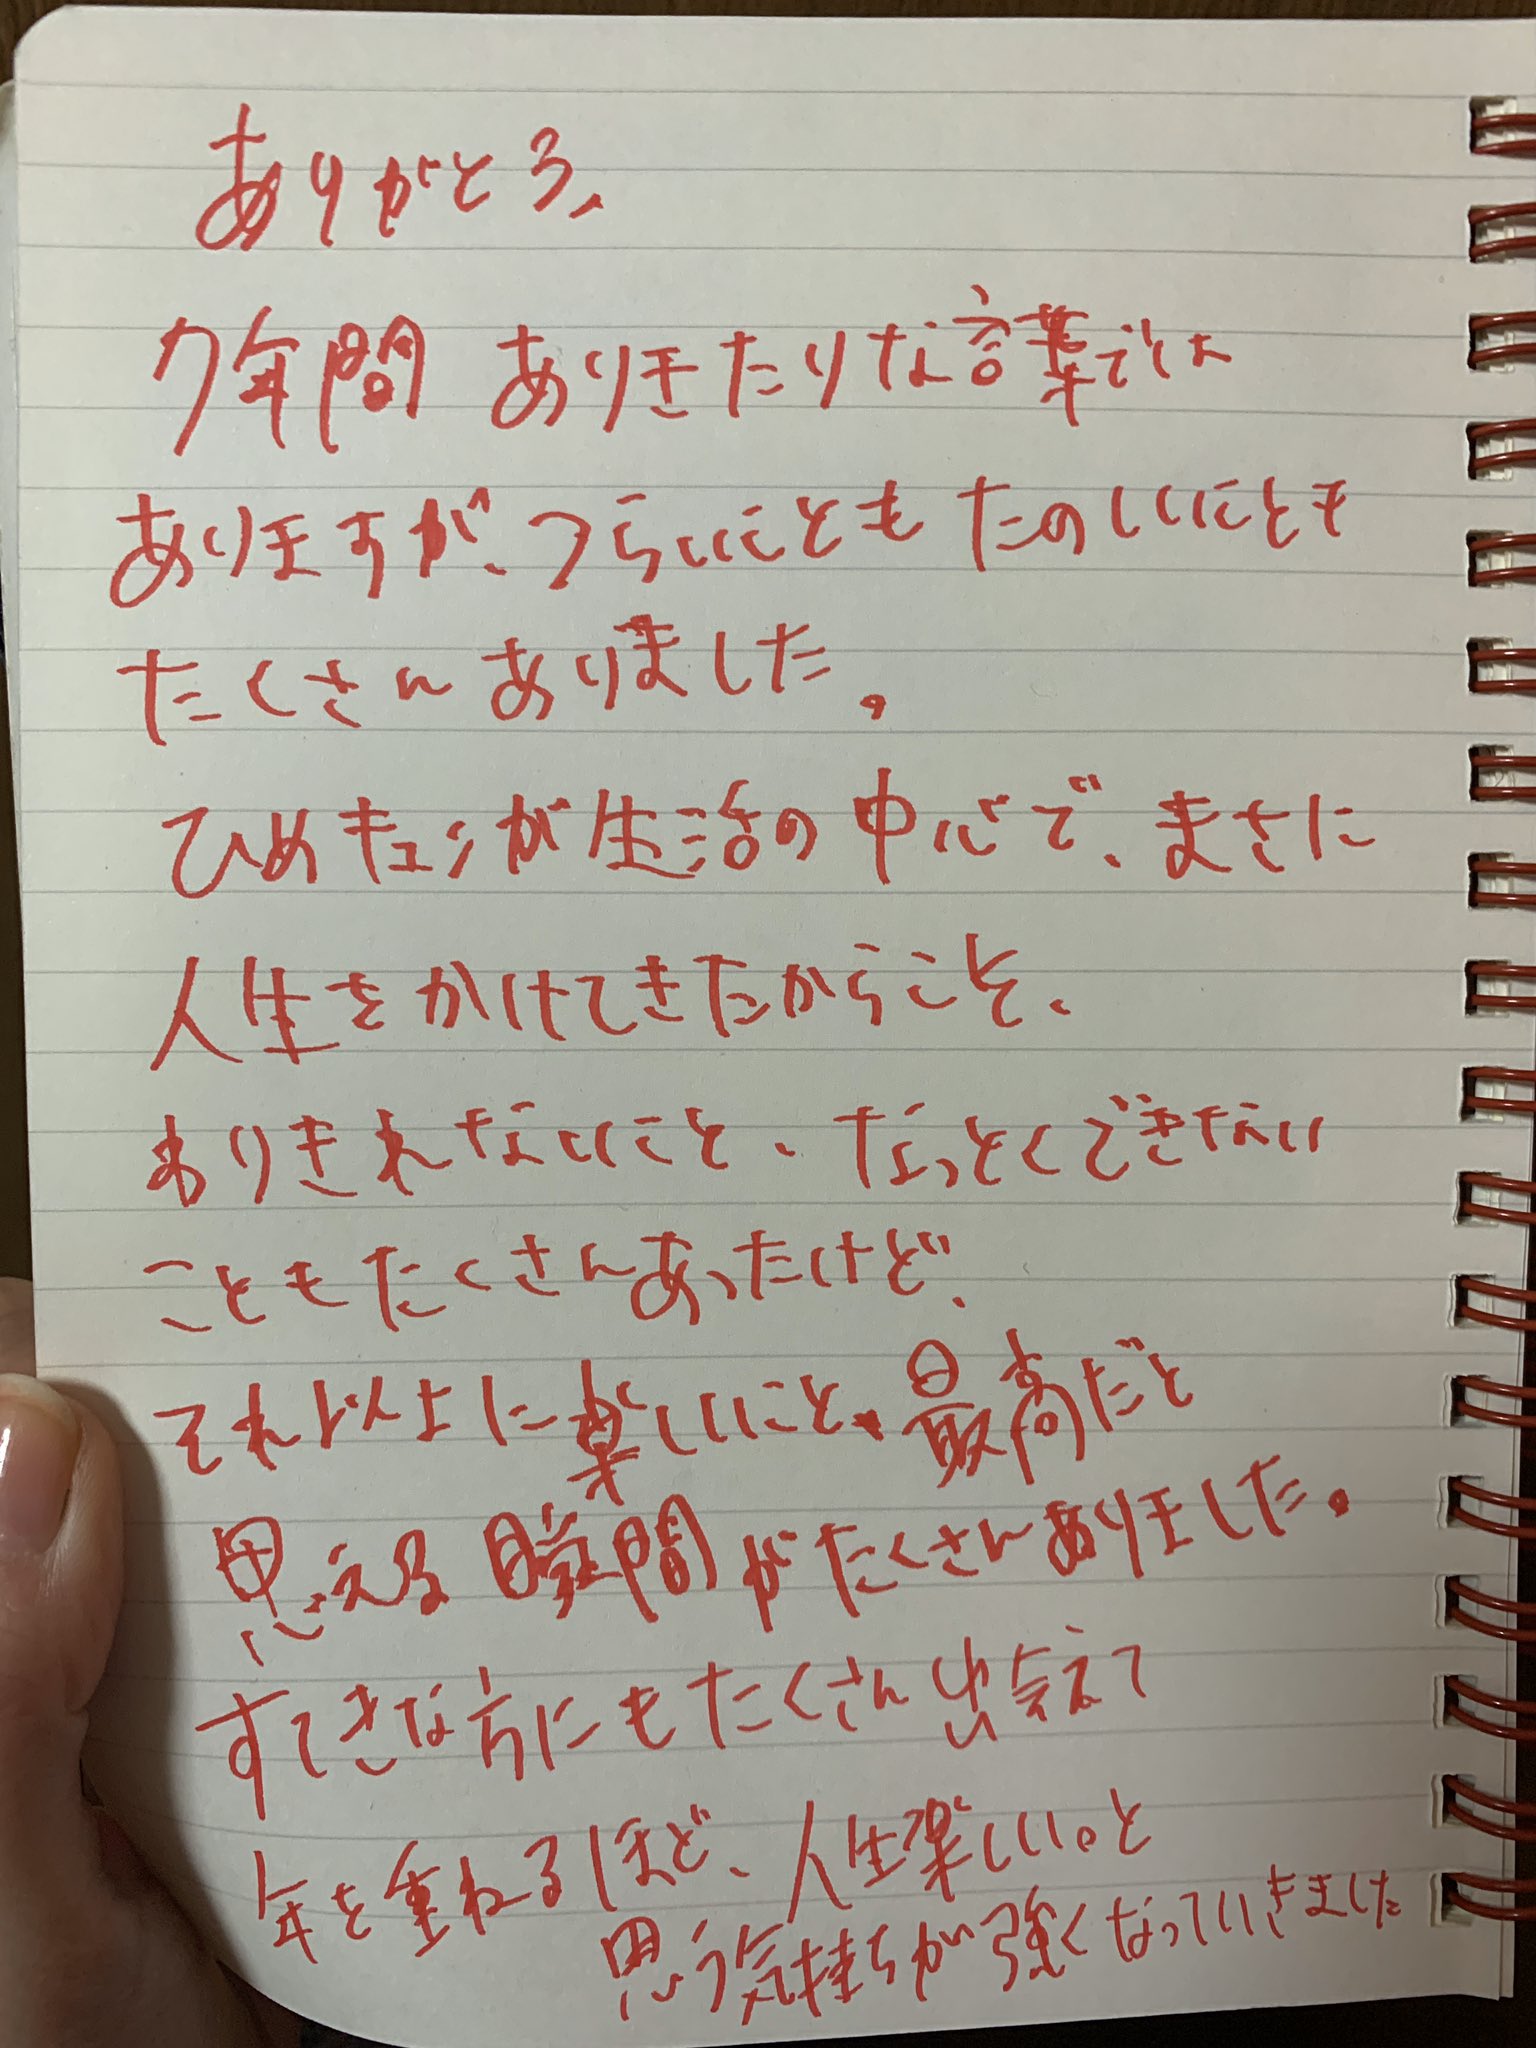 ありがとう、
7年間 ありきたりな言葉では
ありますが、つらいことも たのしいことも
たくさんありました。
ひめキュンが生活の中心で、まさに
人生をかけてきたからこそ、
わりきれないこと、なっとくできない
こともたくさんあったけど、
それ以上に楽しいこと、最高だと
思える瞬間がたくさんありました。
すてきな方にもたくさん出会えて
年を重ねるほど、人生楽しい。と
思う気持ちが強くなっていきました